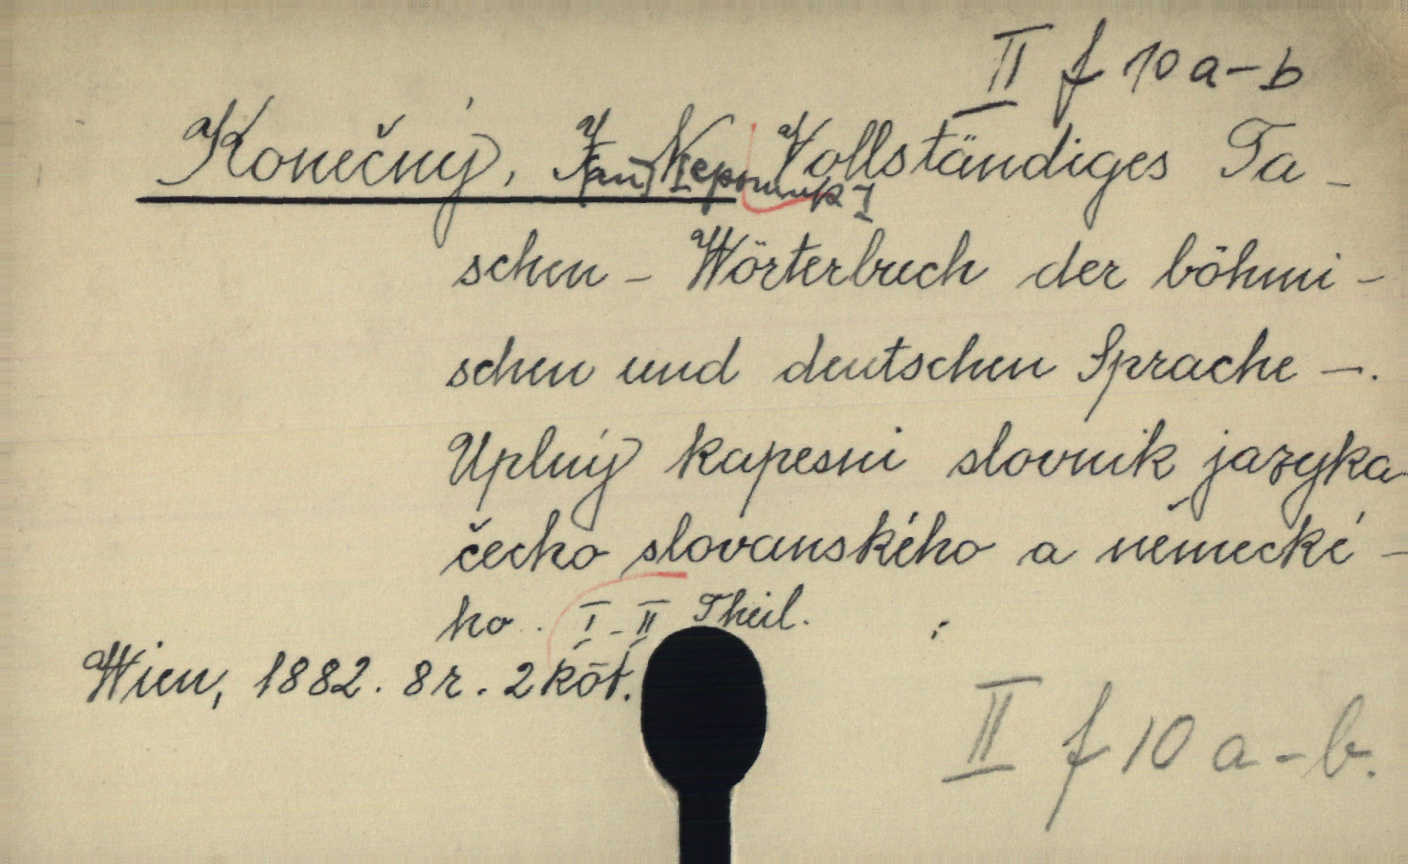 II f 10 a-b
Konečný, J[an] N[epomuk] Vollständiges Ta-
schen-Wörterbuch der böhmi-
schen und deutschen Sprache -.
Uplný kapesni slovnik jazyka
čecho slovanského a némecké-
ho. I-II Theil.
Wien, 1882. 8r. 2 köt.
II f 10 a-b.